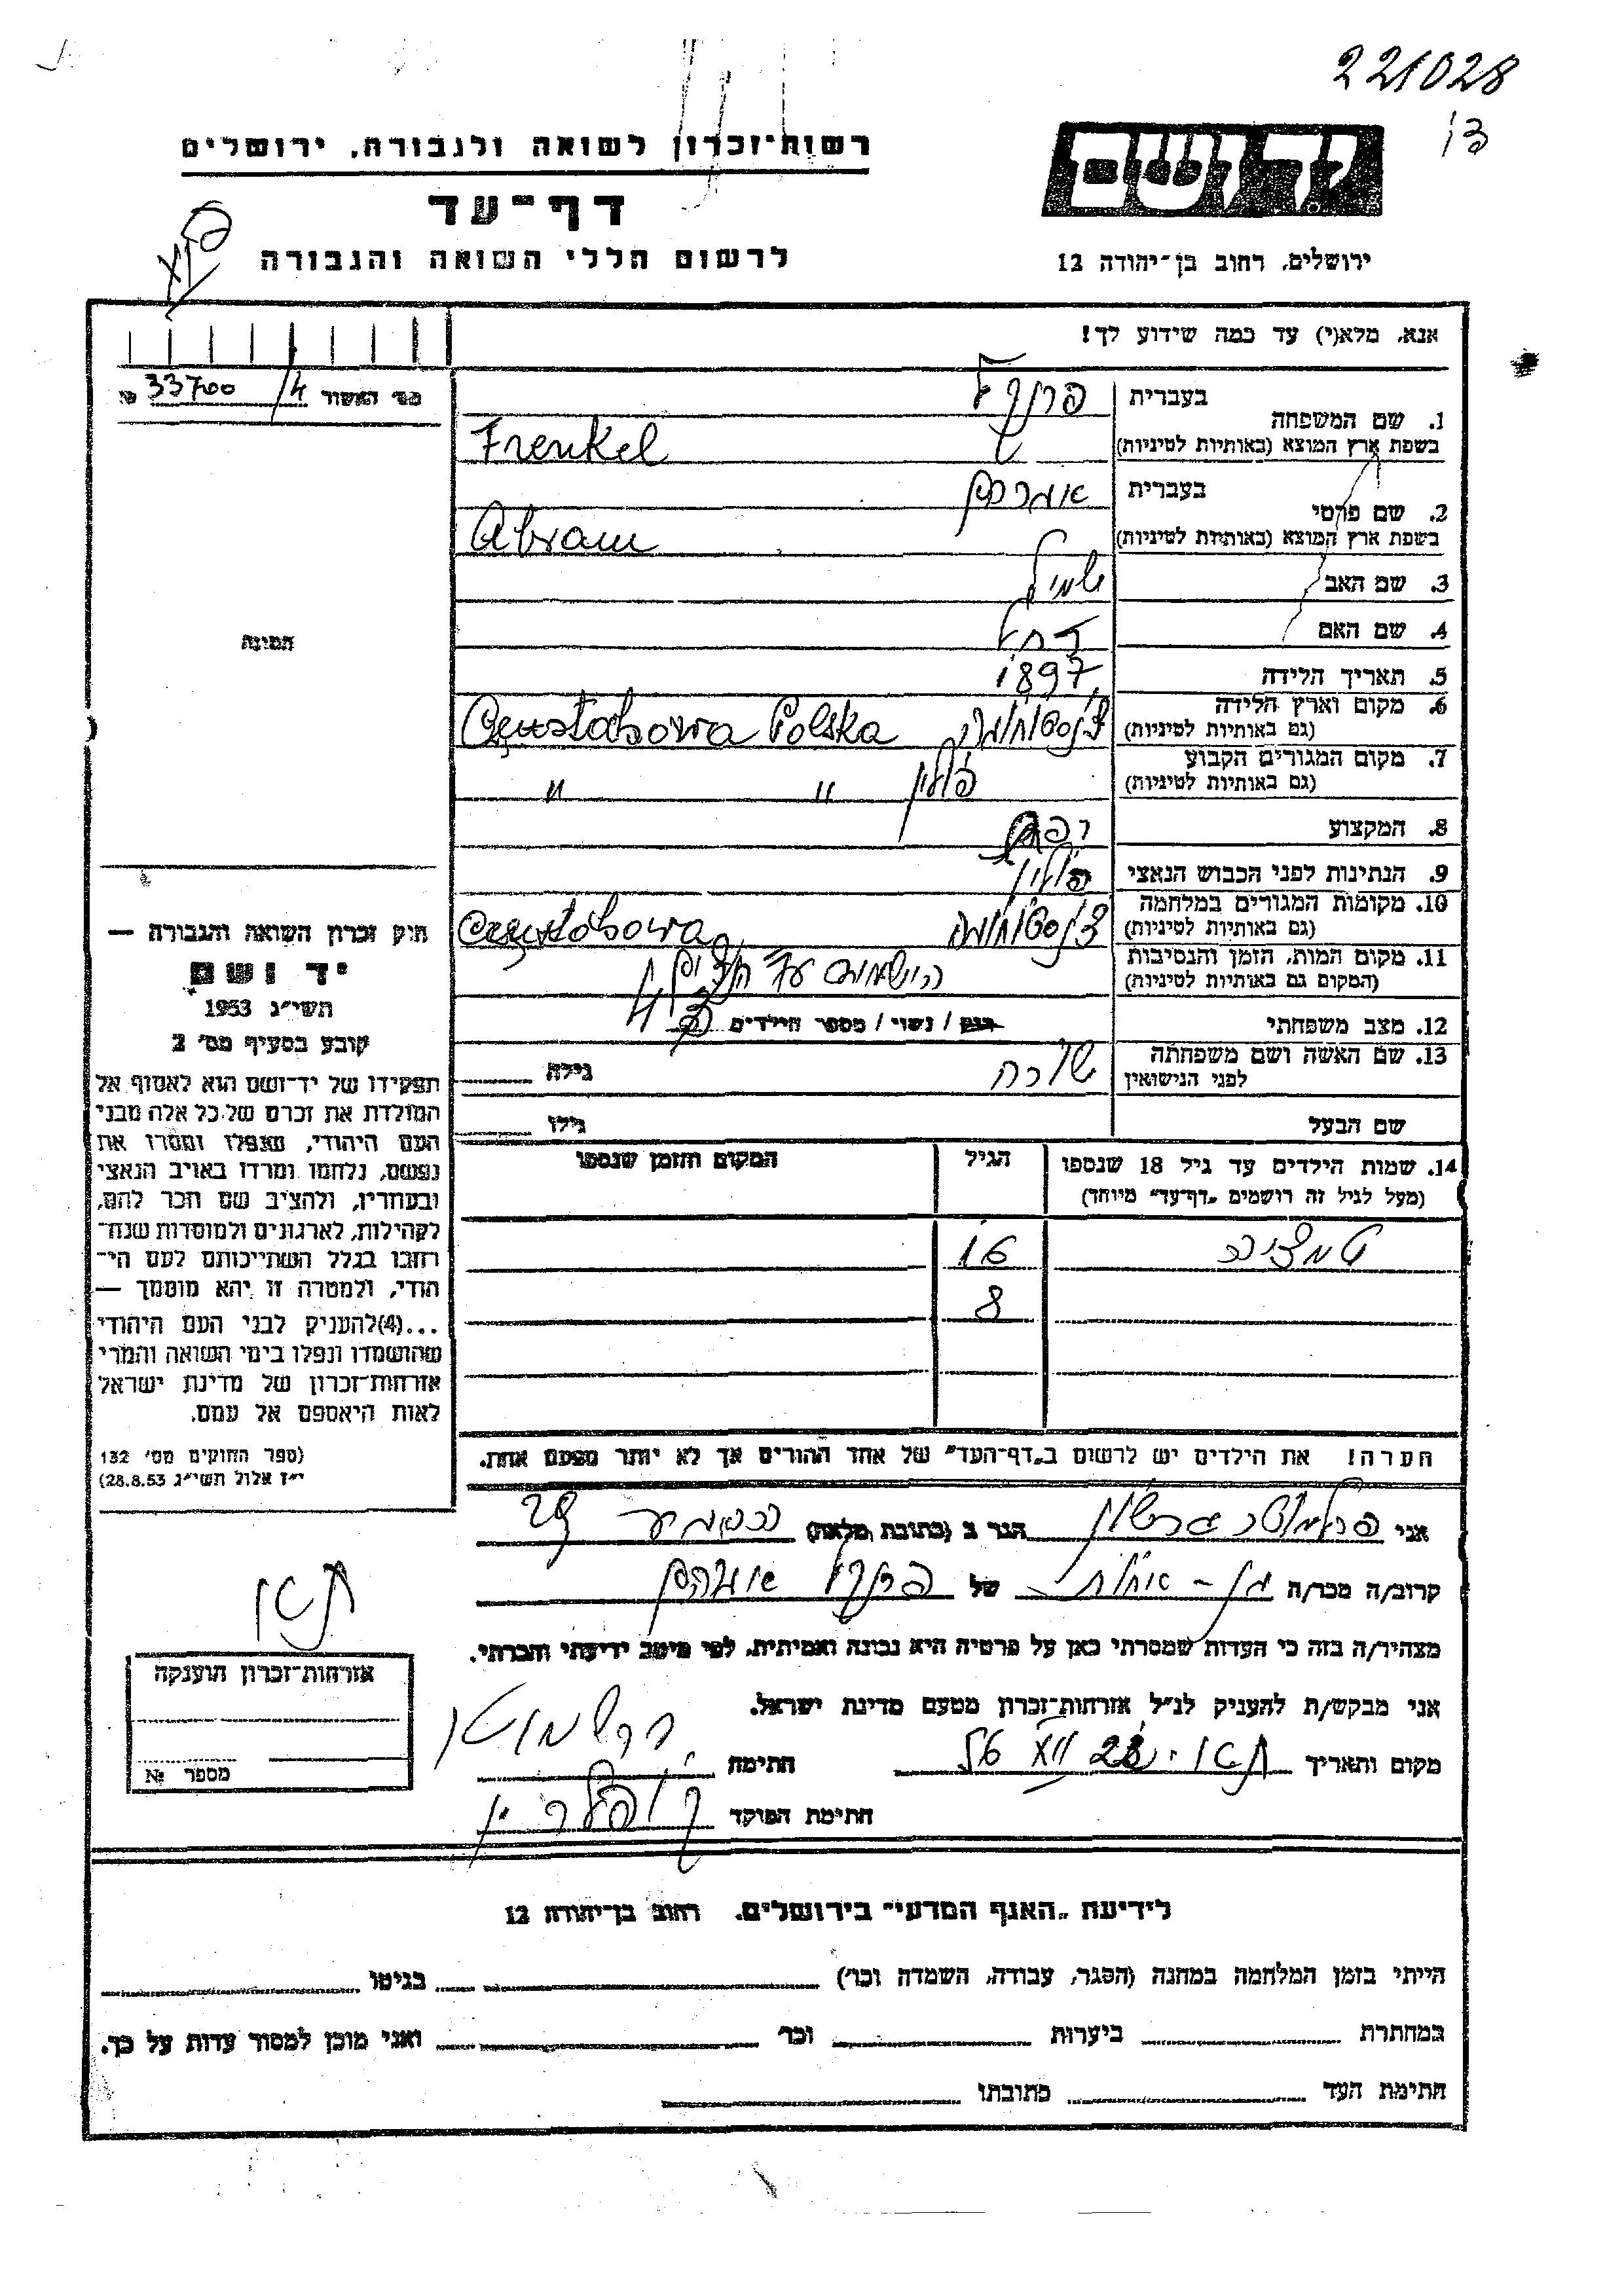 221028
רשות־זכרון לשואה ולגבורה, ירושלים
יד ושם
דף־עד
לרשום חללי השואה והגבורה
ירושלים, רחוב בן־יהודה 12
אנא, מלא(י) עד כמה שידוע לך!
מס׳ האשור 33700/4 №
1. שם המשפחה בעברית פרנקל
בשפת ארץ המוצא (באותיות לטיניות) Frenkel
2. שם פרטי בעברית אברהם
בשפת ארץ המוצא (באותיות לטיניות) Abram
3. שם האב
4. שם האם רחל
5. תאריך הלידה 1897
6. מקום וארץ הלידה צ'נסטוחובה Częstohowa Polska
(גם באותיות לטיניות)
7. מקום המגורים הקבוע פולין " "
(גם באותיות לטיניות)
8. המקצוע
9. הנתינות לפני הכבוש הנאצי פולין
10. מקומות המגורים במלחמה צ'נסטוחובה Częstohowa
(גם באותיות לטיניות)
11. מקום המות, הזמן והנסיבות
(המקום גם באותיות לטיניות)
12. מצב משפחתי רווק / נשוי / מספר הילדים
13. שם האשה ושם משפחתה שרה גילה
לפני הנישואין
שם הבעל גילו
14. שמות הילדים עד גיל 18 שנספו הגיל המקום והזמן שנספו
(מעל לגיל זה רושמים „דף־עד״ מיוחד)
16
8
הערה! את הילדים יש לרשום ב„דף־העד״ של אחד ההורים אך לא יותר מפעם אחת.
התמונה
חוק זכרון השואה והגבורה —
יד ושם
תשי״ג 1953
קובע בסעיף מס׳ 2
תפקידו של יד־ושם הוא לאסוף אל
המולדת את זכרם של כל אלה מבני
העם היהודי, שנפלו ומסרו את
נפשם, נלחמו ומרדו באויב הנאצי
ובעוזריו, ולהציב שם וזכר להם,
לקהילות, לארגונים ולמוסדות שנח־
רחבו בגלל השתייכותם לעם הי־
הודי, ולמטרה זו יהא מוסמך —
...(4) להעניק לבני העם היהודי
שהושמדו ונפלו בימי השואה והמרי
אזרחות־זכרון של מדינת ישראל
לאות היאספם אל עמם.
(ספר החוקים מס׳ 132
י״ז אלול תשי״ג 28.8.53)
אני הגר ב (כתובת מלאה)
קרוב/ה מכר/ה של פרנקל אברהם
מצהיר/ה בזה כי העדות שמסרתי כאן על פרטיה היא נכונה ואמיתית, לפי מיטב ידיעתי והכרתי.
אני מבקש/ת להעניק לנ״ל אזרחות־זכרון מטעם מדינת ישראל.
מקום ותאריך חתימה
חתימת הפוקד
אזרחות־זכרון הוענקה
מספר №
לידיעת „האגף המדעי״ בירושלים, רחוב בן־יהודה 12
הייתי בזמן המלחמה במחנה (הסגר, עבודה, השמדה וכו׳) בגיטו
במחתרת ביערות וכו׳ ואני מוכן למסור עדות על כך.
חתימת העד כתובתו